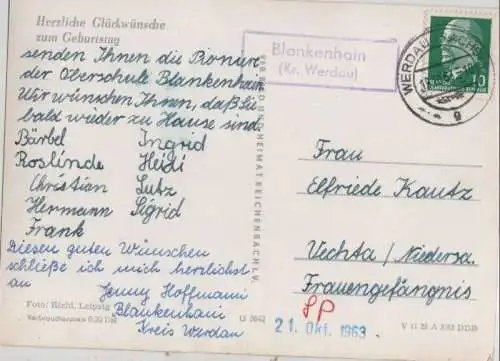 Herzliche Glückwünsche
zum Geburtstag
senden Ihnen die Pionier
der Oberschule Blankenhain
Wir wünschen Ihnen, daß Sie
bald wieder zu Hause sind.
Bärbel Ingrid
Roslinde Heidi
Christian Lutz
Hermann Sigrid
Frank
Diesen guten Wünschen
schließe ich mich herzlichst
an
Jenny Hoffmann
Blankenhain
Kreis Werdau
Foto: Richl, Leipzig
Verbraucherpreis 0,20 DM
13 5042
VEB BILD UND HEIMAT REICHENBACH I. V.
Blankenhain
(Kr. Werdau)
WERDAU
g
10
Frau
Elfriede Kautz
Vechta / Niedersa.
Frauengefängnis
21. Okt. 1963
DDR